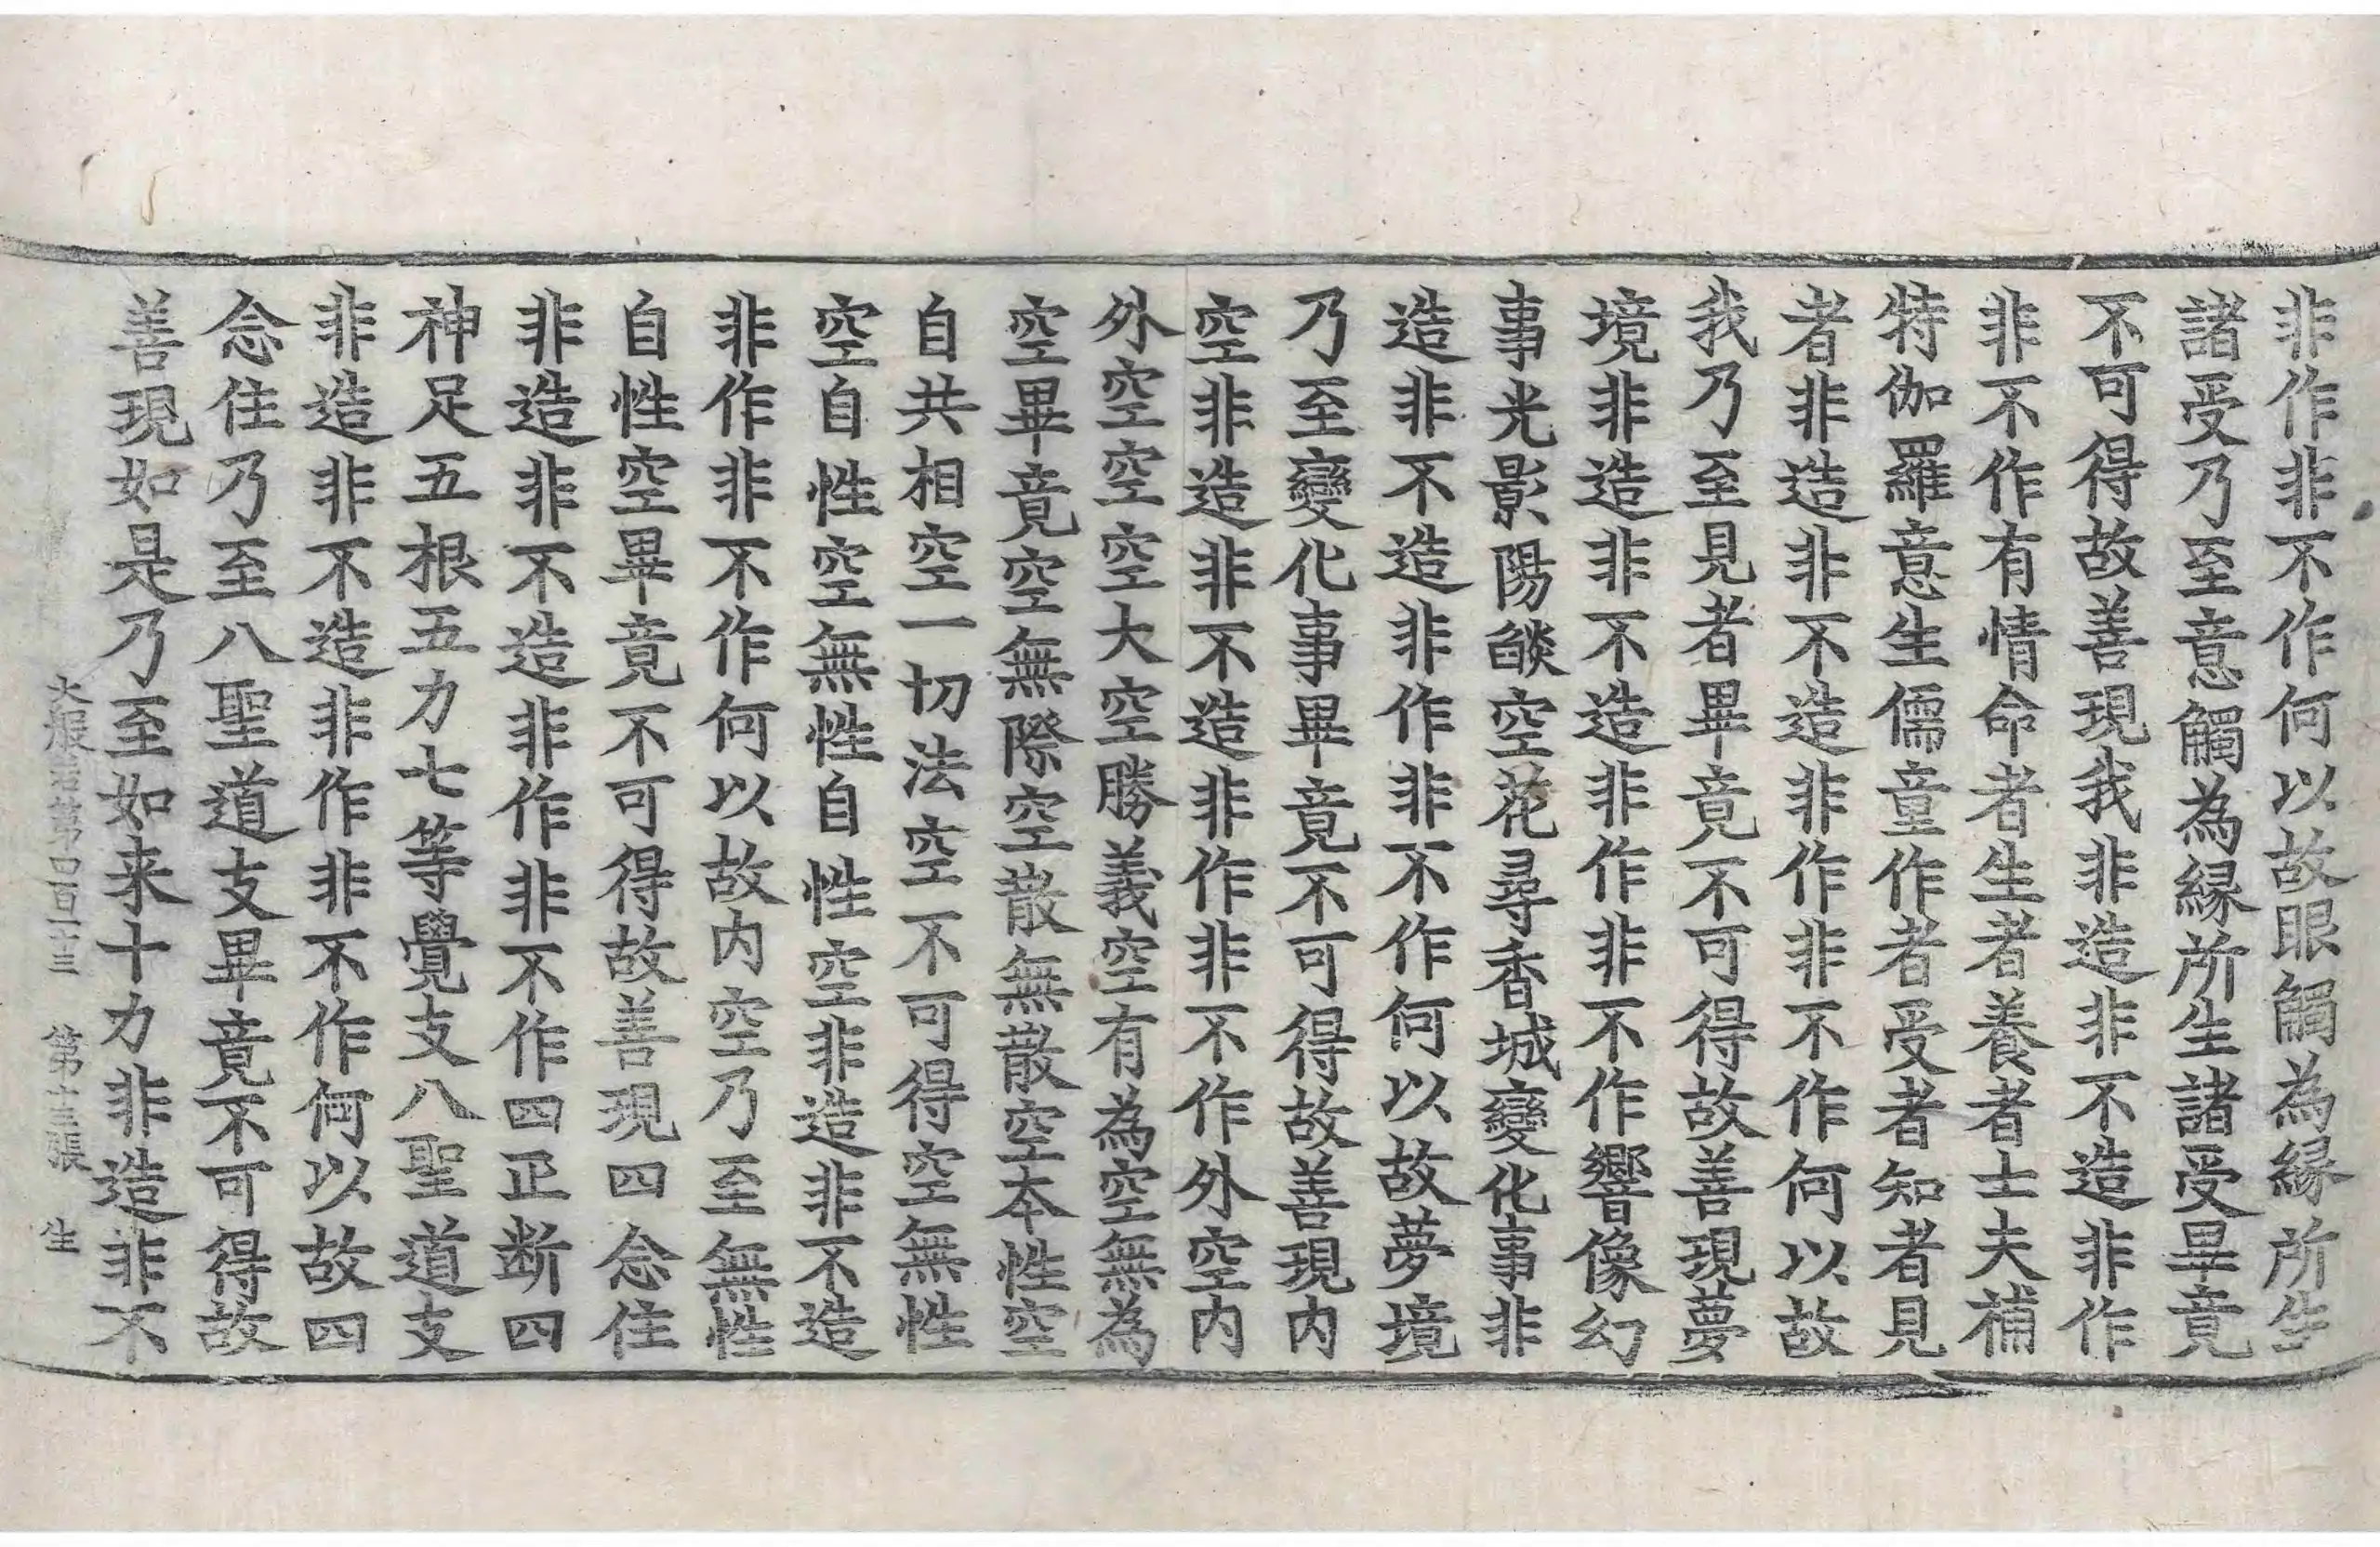 非作非不作何以故眼觸為緣所生
諸受乃至意觸為緣所生諸受畢竟
不可得故善現我非造非不造非作
非不作有情命者生者養者士夫補
特伽羅意生儒童作者受者知者見
者非造非不造非作非不作何以故
我乃至見者畢竟不可得故善現夢
境非造非不造非作非不作響像幻
事光影陽燄空花尋香城變化事非
造非不造非作非不作何以故夢境
乃至變化事畢竟不可得故善現內
空非造非不造非作非不作外空內
外空空空大空勝義空有為空無為
空畢竟空無際空散無散空本性空
自共相空一切法空不可得空無性
空自性空無性自性空非造非不造
非作非不作何以故內空乃至無性
自性空畢竟不可得故善現四念住
非造非不造非作非不作四正断四
神足五根五力七等覺支八聖道支
非造非不造非作非不作何以故四
念住乃至八聖道支畢竟不可得故
善現如是乃至如来十力非造非不
大般若第四百二十三　第十三張　生